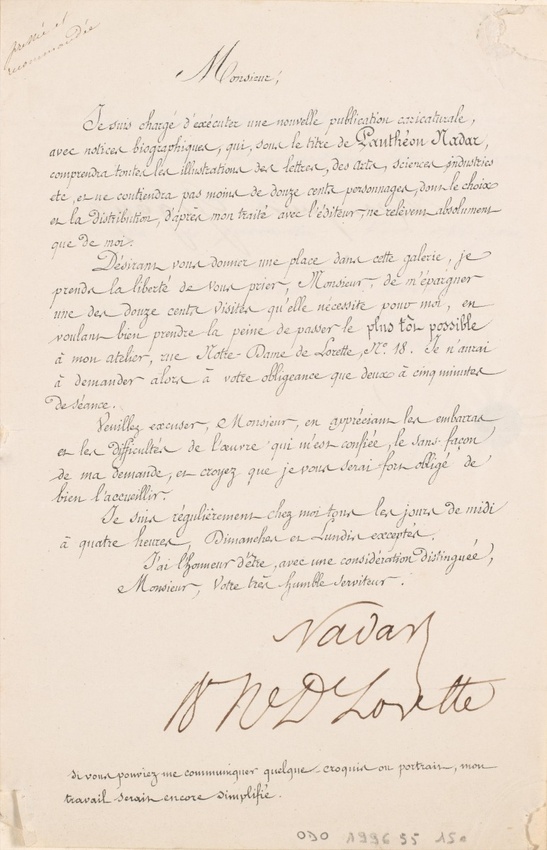 pressée et
recommandée
Monsieur,
Je suis chargé d'exécuter une nouvelle publication caricaturale,
avec notices biographiques, qui, sous le titre de Panthéon Nadar,
comprendra toutes les illustrations des lettres, des arts, sciences industries
etc, et ne contiendra pas moins de douze cents personnages, dont le choix
et la distribution, d'après mon traité avec l'éditeur, ne relèvent absolument
que de moi.
Désirant vous donner une place dans cette galerie, je
prends la liberté de vous prier, Monsieur, de m'épargner
une des douze cents visites qu'elle nécessite pour moi, en
voulant bien prendre la peine de passer le plus tôt possible
à mon atelier, rue Notre-Dame de Lorette, No. 18. Je n'aurai
à demander alors à votre obligeance que deux à cinq minutes
de séance.
Veuillez excuser, Monsieur, en appréciant les embarras
et les difficultés de l'œuvre qui m'est confiée, le sans-façon
de ma demande, et croyez que je vous serai fort obligé de
bien l'accueillir.
Je suis régulièrement chez moi tous les jours de midi
à quatre heures, Dimanches et Lundis exceptés.
J'ai l'honneur d'être, avec une considération distinguée,
Monsieur, Votre très humble serviteur.
Nadar
18 N D de Lorette
si vous pouviez me communiquer quelque croquis ou portrait, mon
travail serait encore simplifié.
ODO 1996 55 150